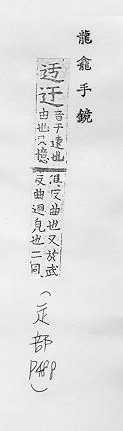 龍龕手鏡
迃迂
音于遠也
曲也又憶
俱反曲也又於武
反曲迴皃也二同
（辵部